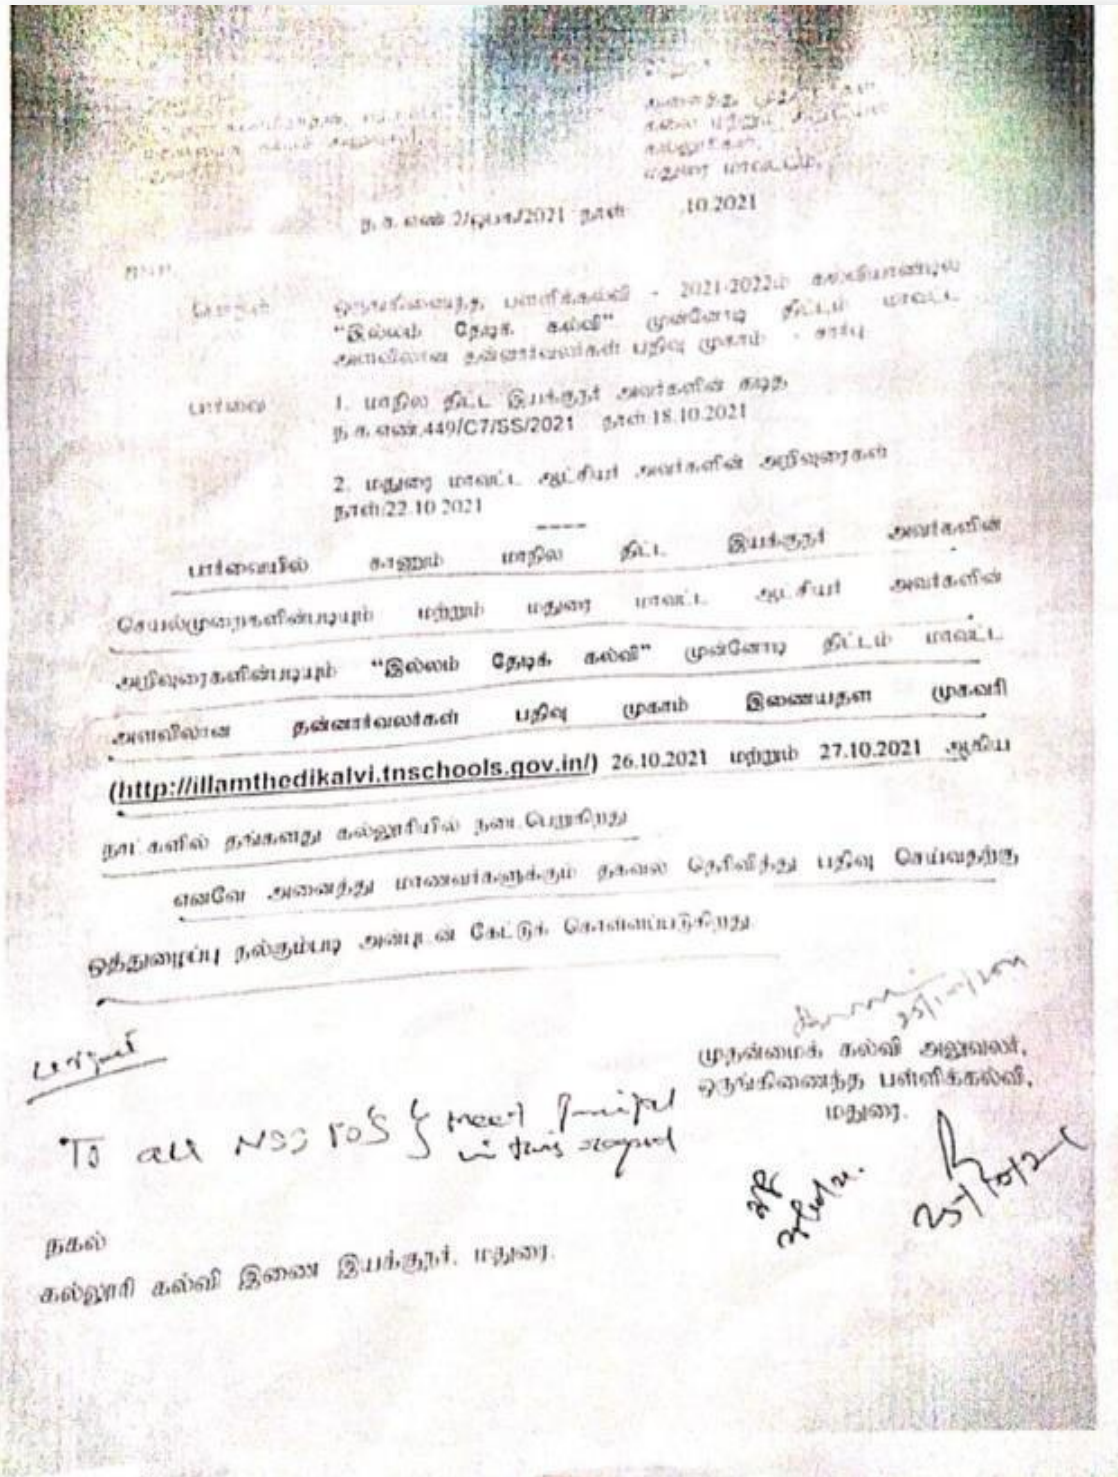 பெறுநர்
அனைத்து முதல்வர்கள்,
கலை மற்றும் அறிவியல்
கல்லூரிகள்,
மதுரை மாவட்டம்.
ந.க. எண் 2/ஒபக/2021 நாள் .10.2021
பொருள் ஒருங்கிணைந்த பள்ளிக்கல்வி - 2021-2022ம் கல்வியாண்டில்
"இல்லம் தேடிக் கல்வி" முன்னோடி திட்டம் மாவட்ட
அளவிலான தன்னார்வலர்கள் பதிவு முகாம் - சார்பு
பார்வை 1. மாநில திட்ட இயக்குநர் அவர்களின் கடித
ந.க.எண்.449/C7/SS/2021 நாள்:18.10.2021
2. மதுரை மாவட்ட ஆட்சியர் அவர்களின் அறிவுரைகள்
நாள்:22.10.2021
----
பார்வையில் காணும் மாநில திட்ட இயக்குநர் அவர்களின்
செயல்முறைகளின்படியும் மற்றும் மதுரை மாவட்ட ஆட்சியர் அவர்களின்
அறிவுரைகளின்படியும் "இல்லம் தேடிக் கல்வி" முன்னோடி திட்டம் மாவட்ட
அளவிலான தன்னார்வலர்கள் பதிவு முகாம் இணையதள முகவரி
(http://illamthedikalvi.tnschools.gov.in/) 26.10.2021 மற்றும் 27.10.2021 ஆகிய
நாட்களில் தங்களது கல்லூரியில் நடைபெறுகிறது
எனவே அனைத்து மாணவர்களுக்கும் தகவல் தெரிவித்து பதிவு செய்வதற்கு
ஒத்துழைப்பு நல்கும்படி அன்புடன் கேட்டுக் கொள்ளப்படுகிறது.
25/10/2021
முதன்மைக் கல்வி அலுவலர்,
ஒருங்கிணைந்த பள்ளிக்கல்வி,
மதுரை.
To all NSS POS } Meet Principal
in this regard
25/10/21
நகல்
கல்லூரி கல்வி இணை இயக்குநர், மதுரை.